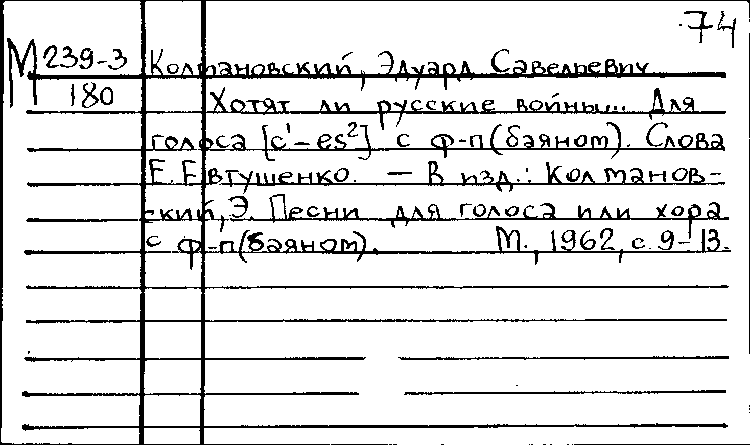 74
М 239-3 Колмановский, Эдуард Савельевич
180 Хотят ли русские войны... Для
голоса [c¹-es²] с ф-п(баяном). Слова
Е. Евтушенко. — В изд.: Колманов-
ский, Э. Песни для голоса или хора
с ф-п(баяном). М., 1962, с. 9-13.